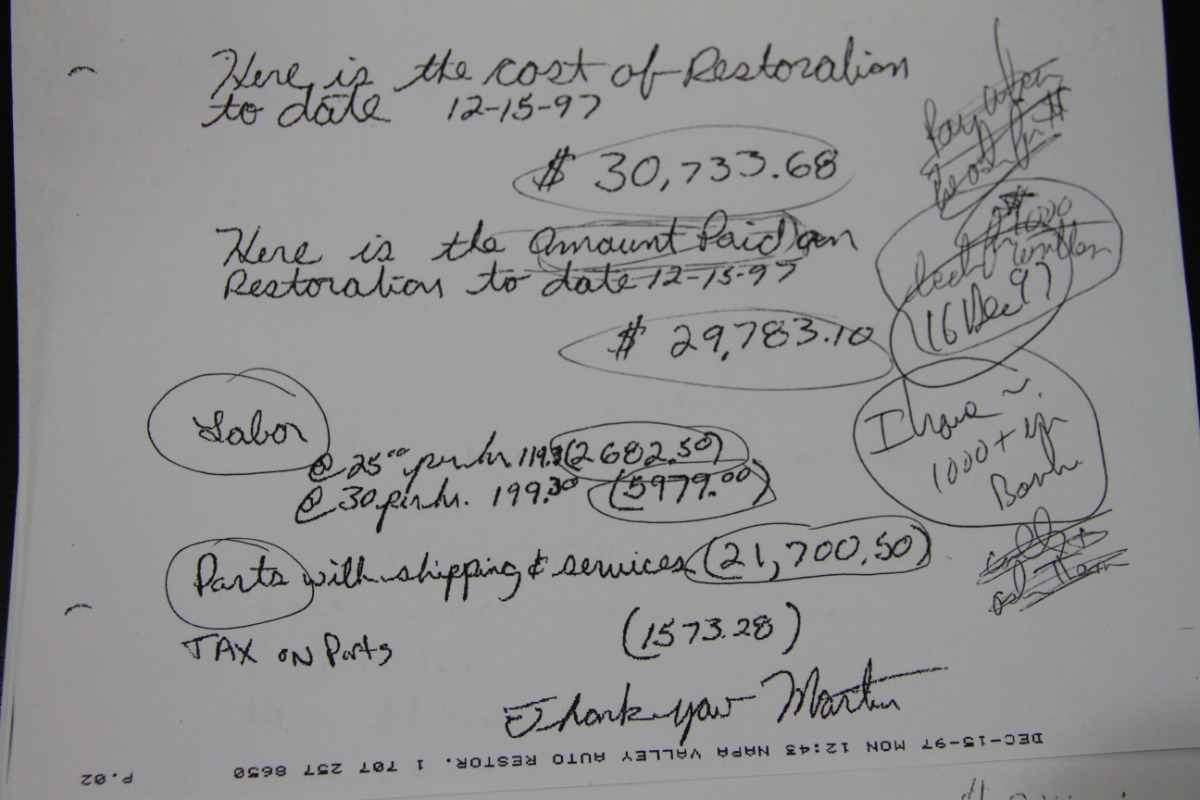 Here is the cost of Restoration
to date 12-15-97
$ 30,733.68
Here is the amount Paid on
Restoration to date 12-15-97
$ 29,783.10
Pay when
$1000
16 Dec 97
Labor
@ 25.00 per hr. 119.3 (2682.50)
@ 30 per hr. 199.30 (5979.00)
I have
1000 + in
Bank
Parts with shipping & services (21,700.50)
TAX ON Parts (1573.28)
Thank you Martin
DEC-15-97 MON 12:43 NAPA VALLEY AUTO RESTOR. 1 707 257 8650 P.02